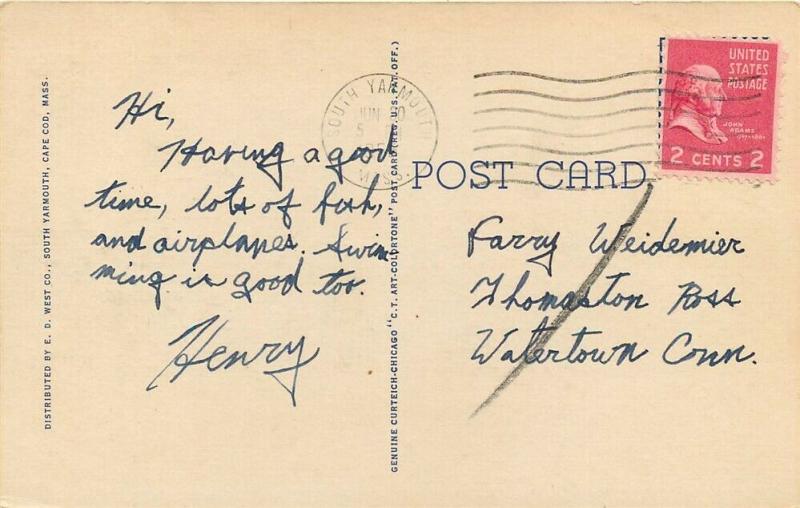 Hi,
Having a good
time, lots of fish,
and airplanes. Swim-
ming is good too.
Henry
DISTRIBUTED BY E. D. WEST CO., SOUTH YARMOUTH, CAPE COD, MASS.
GENUINE CURTEICH-CHICAGO "C.T. ART-COLORTONE" POST CARD (REG. U.S. PAT. OFF.)
SOUTH YARMOUTH
JUN
5
MASS.
POST CARD
UNITED
STATES
POSTAGE
JOHN
ADAMS
2 CENTS 2
Larry Weidemier
Thomaston Ross
Watertown Conn.